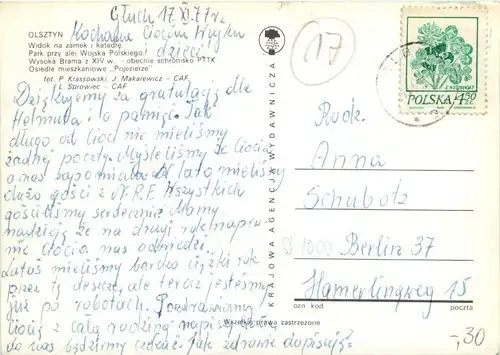 Głuch 17.XI.77r.
OLSZTYN
Kochana Ciociu Wujku
Widok na zamek i katedrę.
dzieci
Park przy alei Wojska Polskiego.
Wysoka Brama z XIV w. — obecnie schronisko PTTK
Osiedle mieszkaniowe „Pojezierze"
fot. P. Krassowski, J. Makarewicz - CAF
L. Surowiec - CAF
Dziękujemy za gratulacje dla
Helmuta i o pamięć. Tak
długo od Cioci nie mieliśmy
żadnej poczty. Myśleliśmy że Ciocia
o nas zapomniała. W lato mieliśmy
dużo gości z N.R.F. Wszystkich
gościliśmy serdecznie. Mamy
nadzieję że na drugi rok napew-
nie Ciocia nas odwiedzi.
Latoś mieliśmy bardzo ciężki rok
przez te deszcze, ale teraz jesteśmy
już po robotach. Pozdrawiamy
Ciocię z całą rodziną napiszcie
do nas będziemy czekać. Jak zdrowie dopisuje?
Wszelkie prawa zastrzeżone
KRAJOWA AGENCJA WYDAWNICZA
17
POLSKA 1,50 ZŁ
Rodz.
Anna
Schubotz
D 1000 Berlin 37
Hamerlingweg 15
ozn kod
poczta
-,30